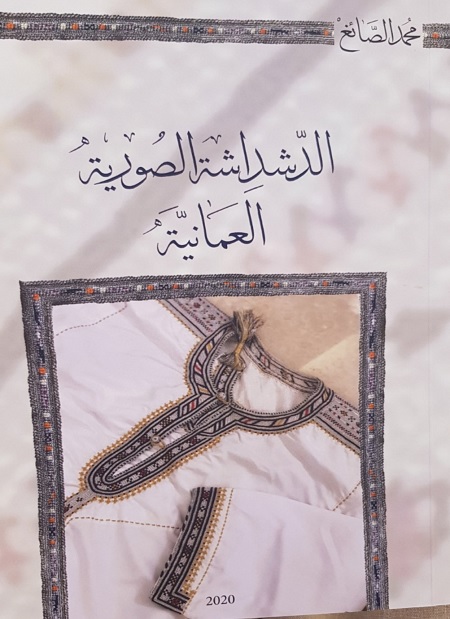 محمد الصائغ
الدشداشة الصورية
العمانية
2020